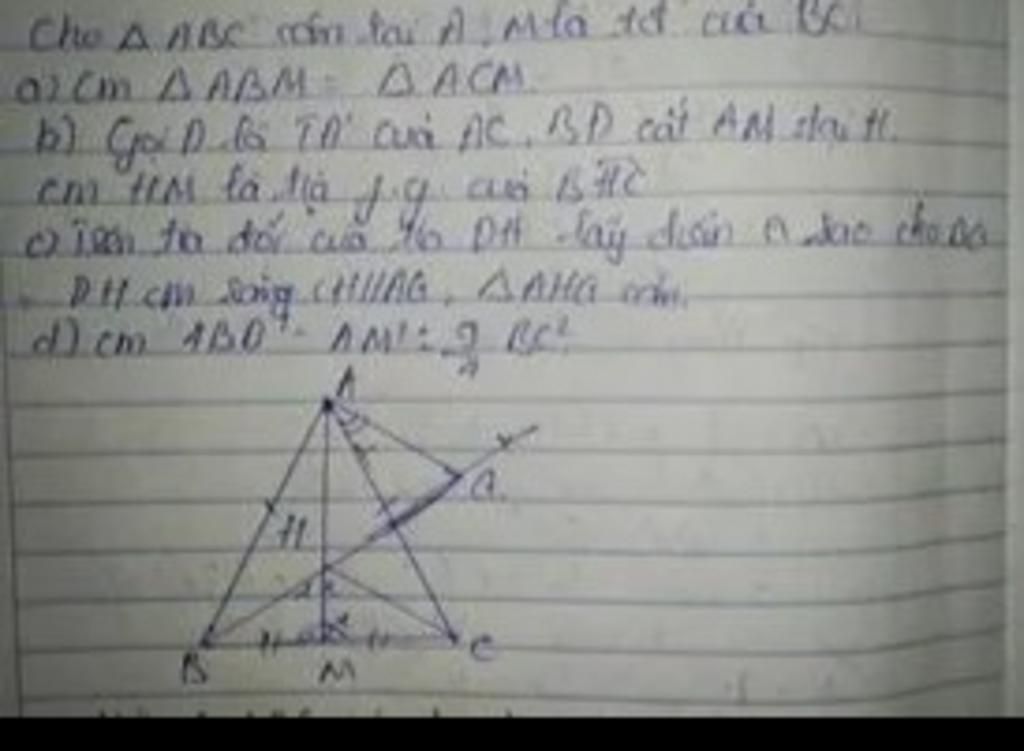 Cho △ ABC cân tại A, M là tđ của BC.
a) Cm △ ABM = △ ACM.
b) Gọi D là TĐ của AC, BD cắt AM tại H.
cm HM là tia p.g của BHC
c) Trên tia đối của tia DH lấy điểm G sao cho DG
= DH cm song CH//AG, △AHG cân.
d) cm 4BD² - AM² = 9/4 BC²
A
G
H
B
M
C